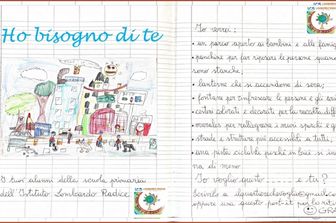 Ho bisogno di te
I tuoi alunni della scuola primaria
dell'Istituto Lombardo Radice
Io vorrei:
• un parco aperto ai bambini e alle fami
• panchine per far riposare le persone quan
sono stanche;
• lanterne che si accendono di sera;
• fontane per rinfrescare le persone e gli an
• cestini colorati e decorati per la raccolta diff
• murales per ritinteggiare i muri sporchi e g
• strade e strutture più accessibili a tutti;
• una pista ciclabile perché in bici si in
na di meno.
Io voglio questo.... e tu?
Scrivilo a
oppure usa questo post-it per